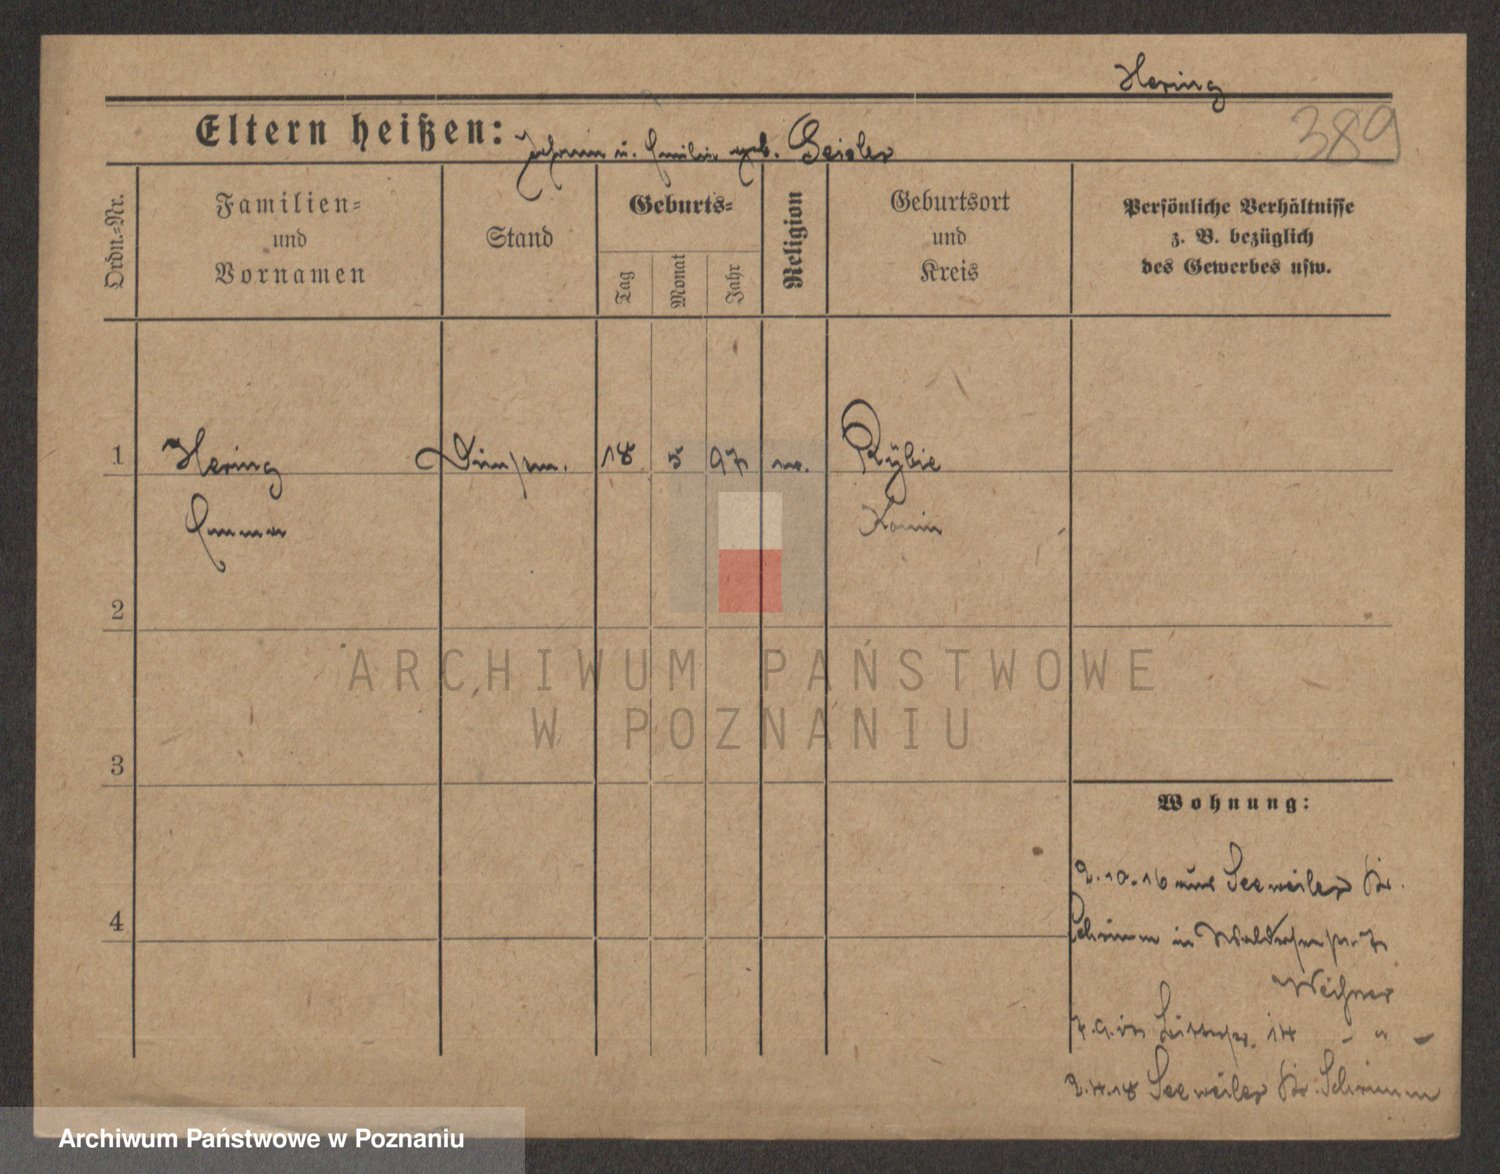 Hering
389
Eltern heißen: Johann u. Emilie geb. Geisler
Ordn.-Nr.
Familien-
und
Vornamen
Stand
Geburts-
Tag
Monat
Jahr
Religion
Geburtsort
und
Kreis
Persönliche Verhältnisse
z. B. bezüglich
des Gewerbes usw.
1
Hering
18
5
97
Rybie
Emma
Konin
2
ARCHIWUM PAŃSTWOWE
W POZNANIU
3
Wohnung:
2.10.16 aus Seeweiler Kr.
4
Schrimm in
2.4.18 Seeweiler Kr. Schrimm
Archiwum Państwowe w Poznaniu